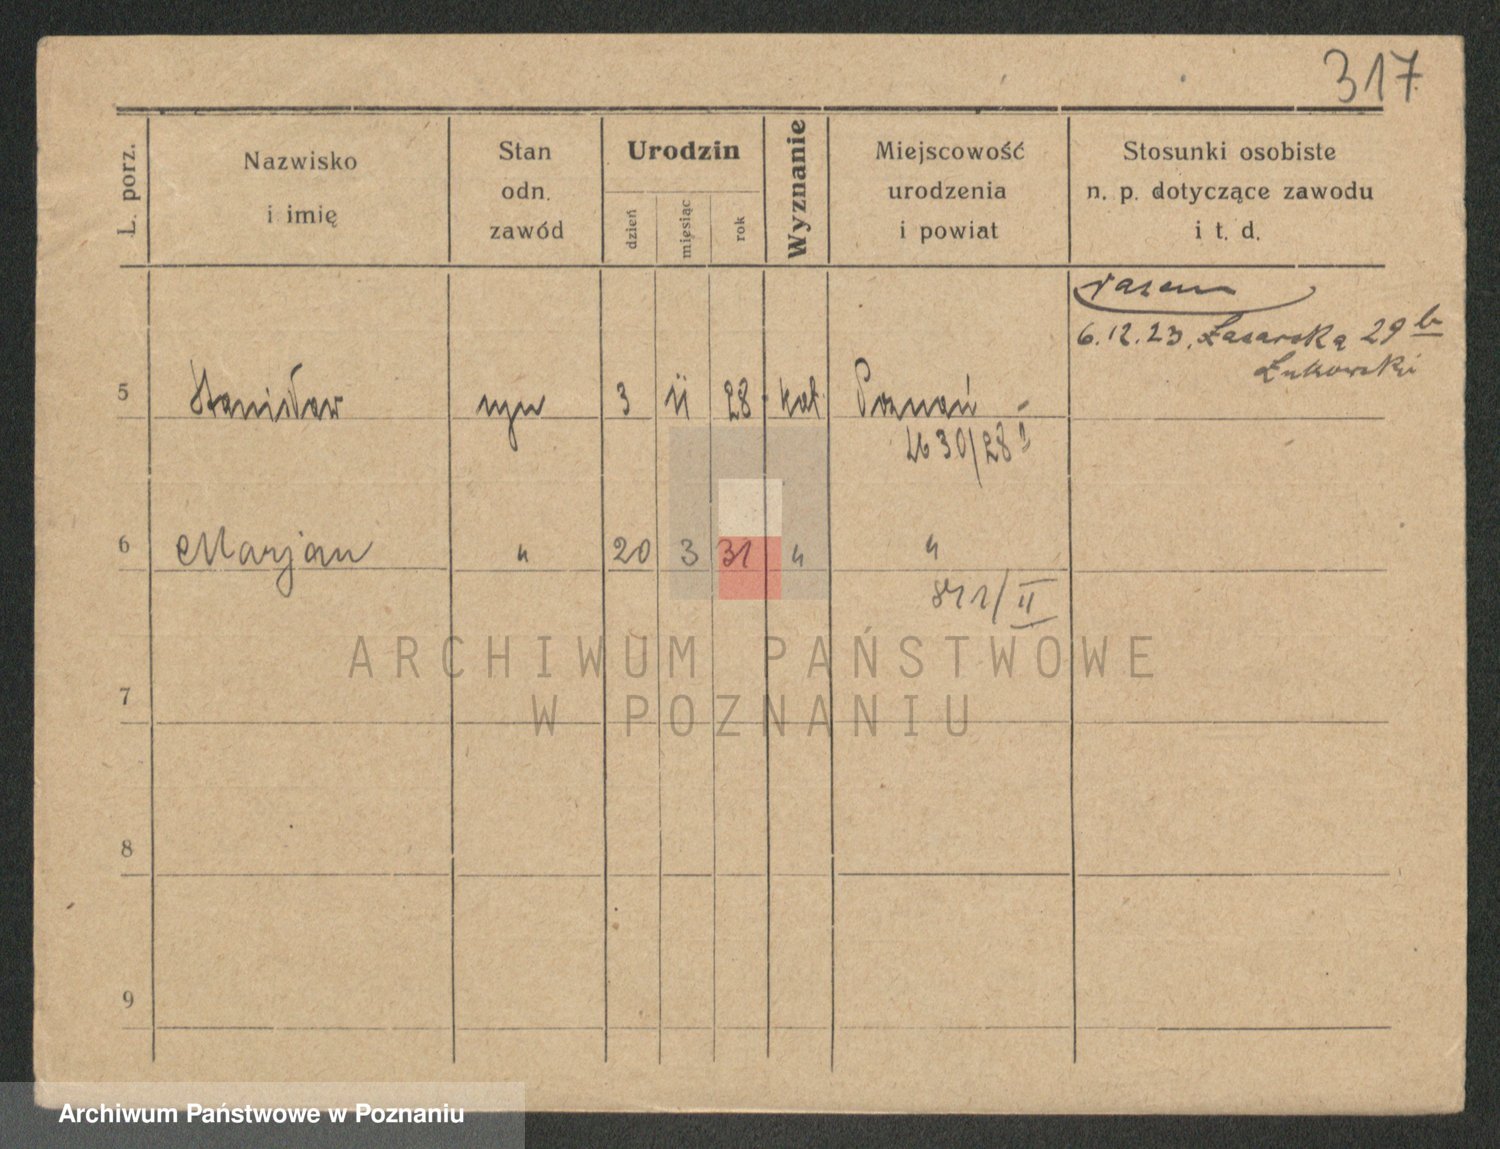 317
L. porz.
Nazwisko
i imię
Stan
odn.
zawód
Urodzin
dzień
miesiąc
rok
Wyznanie
Miejscowość
urodzenia
i powiat
Stosunki osobiste
n. p. dotyczące zawodu
i t. d.
razem
6.12.23. Łazarska 29 b
Łukowski
5 Stanisław syn 3 11 28 kat Poznań
30/28
6 Marjan " 20 3 31 " "
841/II
ARCHIWUM PAŃSTWOWE
W POZNANIU
7
8
9
Archiwum Państwowe w Poznaniu